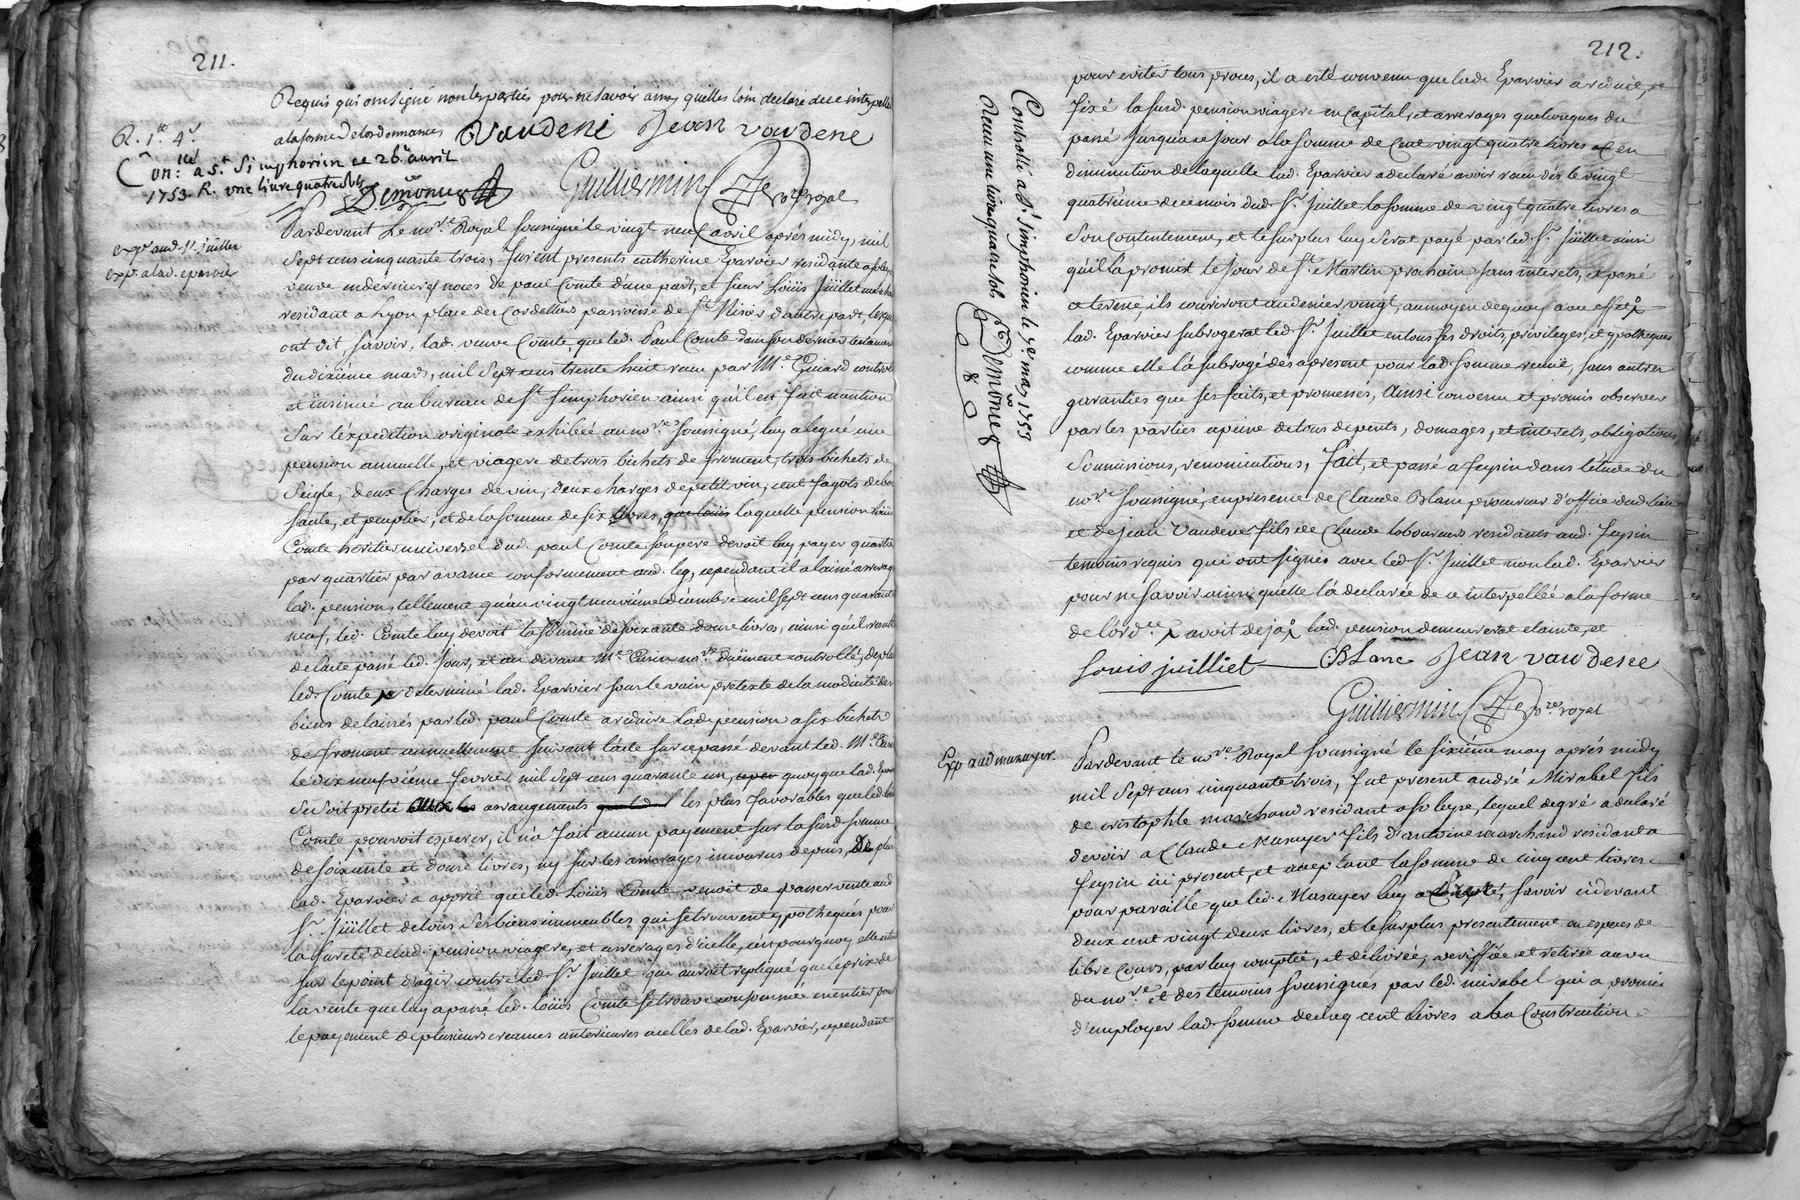 211.
Requis qui ont signé non les parties pour ne savoir ainsy quelles l'ont declaré de ce interpellé
a la forme de lordonnances Vaudene Jean vaudene
R. 1# 4s
Con: à St Simphorien ce 26 avril
1753 R. une livre quatre sols
Demones
Guilliermin nore royal
expé aud. Sr. juillet
expé. a lad. eparvier
Pardevant Le nore. Royal soussigné le vingt neuf avril aprés midy, mil
Sept cens cinquante trois, furent presents catherine Eparvier residante a
veuve en derniere noces de paul Comte d'une part, et sieur Loüis Jüillet
residant a Lyon place des Cordelliers parroisse de St. Nisiés d'autre part, lesqu
ont dit, savoir, lad. veuve Comte, que led. Paul Comte dans son dernier testamen
du dixième mars, mil Sept cens trente huit receu par Me. Guiard controlé
et insinué au bureau de St. Simphorien ainsi qu'il est fait mention
Sur l'expedition originale exhibée au nore. soussigné, luy a legué une
pension annuelle, et viagere de trois bichets de froment, trois bichets de
Seigle, deux Charges de vin, deux charges de petit vin, cent fagots de bois
saule, et peuplier, et de la somme de six livres, que loüis laquelle pension loüis
Comte heritier universel dud. paul Comte son pere devoit luy payer quartier
par quartier par avance conformement aud. leg, cependant il a laissé arrerag
lad. pension, tellement qu'au vingt neuvième décembre mil sept cens quarante
neuf, led. Comte luy devoit la somme de soixante douze livres, ainsi qu'il resulte
de l'acte passé led. jour, et an devant Me. Carin nore. düement controllé, de plus
led. Comte determiné lad. Eparvier sous le vain pretexte de la modicité des
biens delaissés par led. paul Comte a reduire lad. pension a six bichets
de froment annuellement suivant l'acte sur ce passé devant led. Me. Carin
le dix neufvième fevrier mil sept cens quarante quoyque lad. Epar
Se soit pretée aux arrangements les plus favorables que led.
Comte pouvoit esperer, il n'a fait aucun payement sur la susd. somme
de soixante et douze livres, ny sur les arrerages encourus depuis, De plus
lad. Eparvier a appris que led. Loüis Comte venoit de passer vente aud.
Sr. Jüillet de tous ses biens immeubles qui se trouvent ypothequés pour
la sureté de lad. pension viagere, et arrerages d'icelle, c'est pourquoy elle etoit
sur le point d'agir contre led. Sr. Juillet qui auroit repliqué que le prix de
la vente que luy a passé led. loüis Comte se trouve consommé en entier pour
le payement de plusieurs creances anterieures a celles de lad. Eparvier, cependant
212.
pour eviter tous proces, il a esté convenu que lad. Eparvier a reduit, et
fixé la susd. pension viagere en Capital, et arrerages quelconques du
passé jusqua ce jour a la somme de Cent vingt quatre livres en
diminution de laquelle lad. Eparvier a declaré avoir receu dés le vingt
quatrième de ce mois dud. Sr. Juillet la somme de vingt quatre livres a
son contentement, et le surplus luy serat payé par led. Sr. Jüillet ainsi
qu'il l'a promit le jour de St. Martin prochain sans interets, et passé
ce terme, ils couriront au denier vingt, au moyen de quoy avec effet
lad. Eparvier subrogerat led. Sr. Juillet en tous ses droits, privileges, et ypotheques
comme elle l'a subrogé dés a present pour lad. somme receüe, sans autres
garanties que ses faits, et promesses, Ainsi convenu et promis observer
par les parties a peine de tous depents, domages, et interets, obligations,
soumissions, renonciations, fait, et passé a feysin dans l'étude du
nore. soussigné, en presence de Claude Blanc procureur d'office dud. lieu
et de jean Vaudene fils de Claude laboureurs residants aud. feysin
temoins requis qui ont signés avec led. Sr. Juillet non lad. Eparvier
pour ne savoir ainsi qu'elle l'a declarée de ce interpellée a la forme
de lordce. avoit deja lad. pension demeurerat eteinte, et
Louis juilliet Blanc Jean vaudene
Guilliermin nore royal
Controllé a St. Simphorien le 7e. may 1753
Receu une livre quatre sols. Demones
Exp. aud. musayer.
Pardevant le nore. Royal soussigné le sixième may aprés midy
mil Sept cens cinquante trois, fut present andré Mirabel fils
de cristophle marchand residant a soleyse, lequel de gré a declaré
devoir a Claude Musayer fils d'antoine marchand residant a
feysin ici present, et acceptant la somme de cinq cent livres
pour pareille que led. Musayer luy a Savoir cidevant
deux cent vingt deux livres, et le surplus presentement en especes de
libre Cours, par luy comptée, et delivrée, veriffiée et retirée au vu
du nore. et des temoins soussignés par led. mirabel qui a promis
d'employer lad. somme de cinq cent livres a la Construction